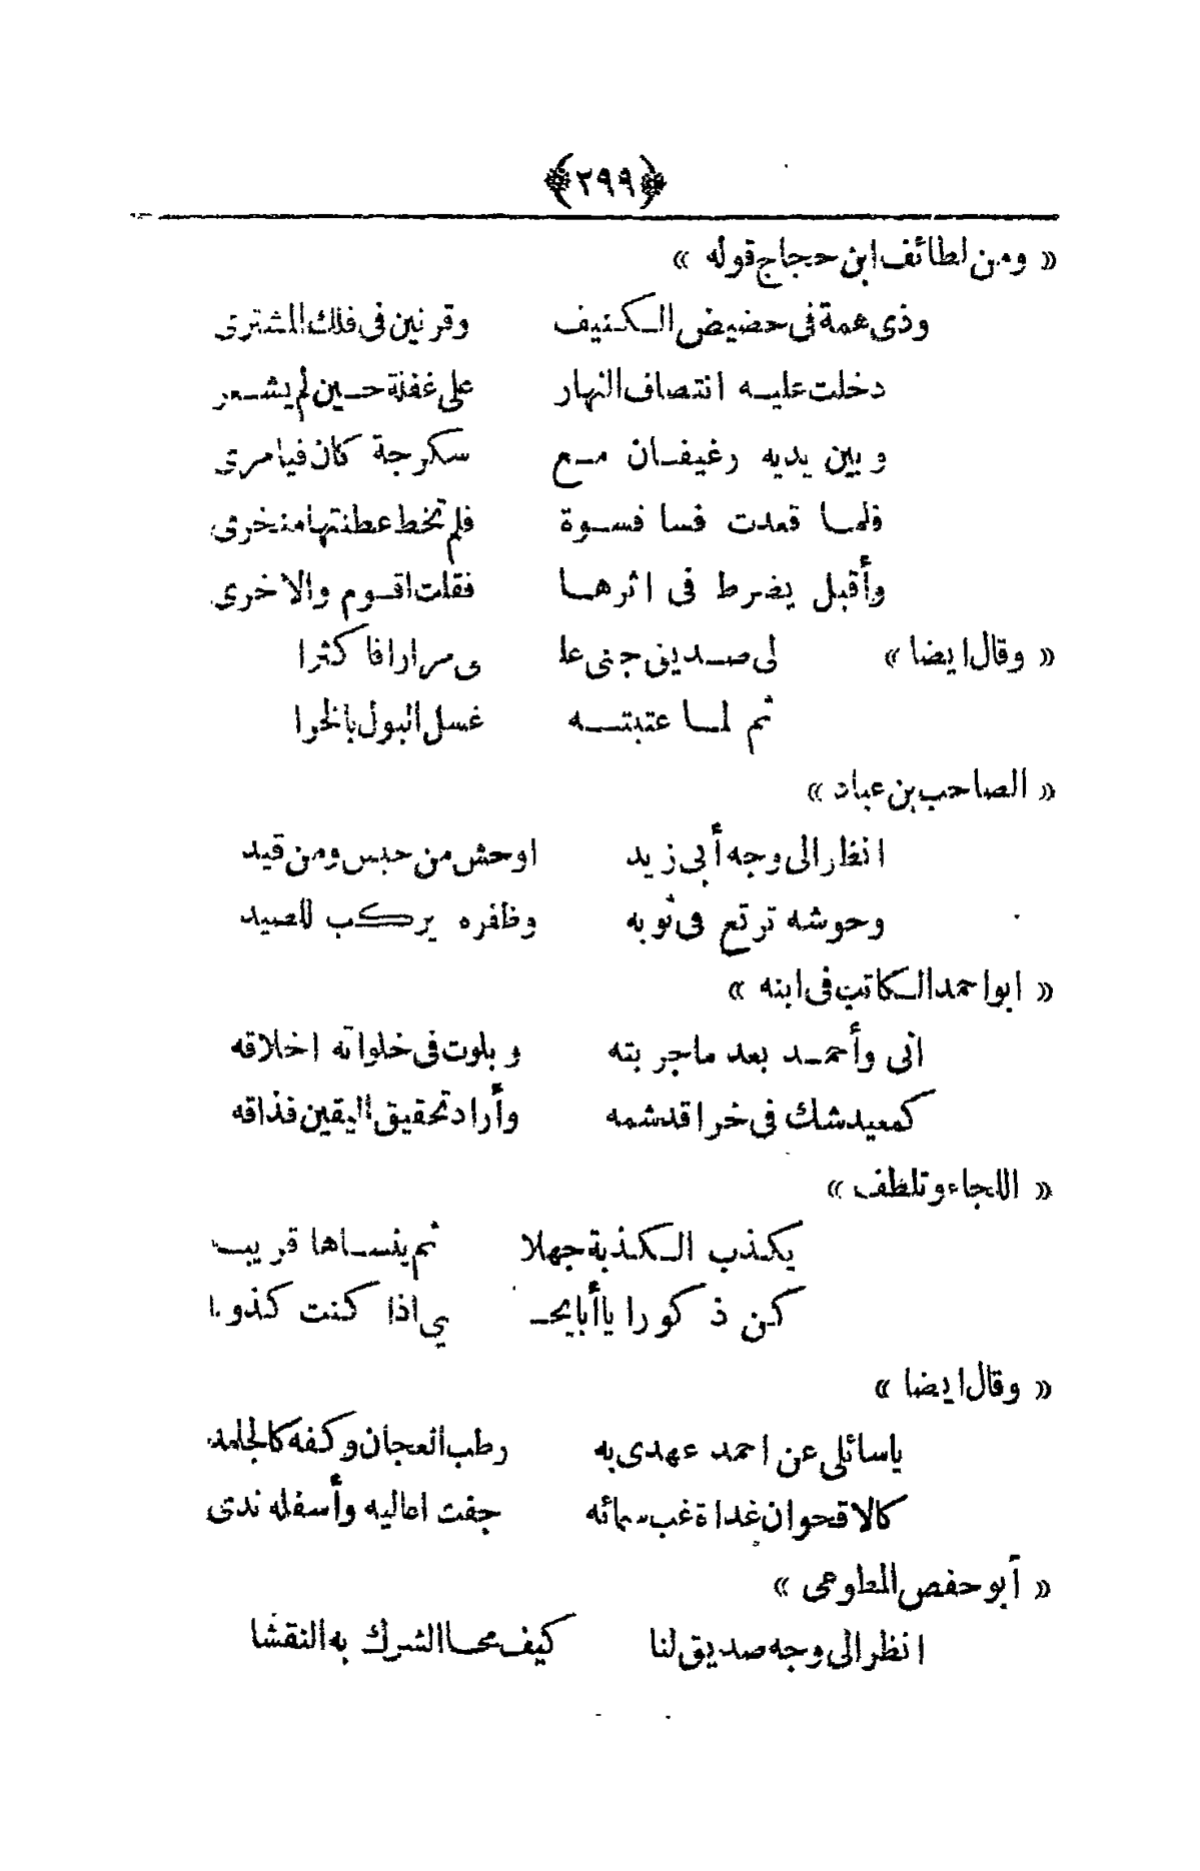 ﴿٢٩٩﴾
« ومن لطائف ابن حجاج قوله »
وذى عمة فى حضيض الكنيف وقرنين فى فلك المشترى
دخلت عليه انتصاف النهار على غفلة حين لم يشعر
وبين يديه رغيفان مع سكرجة كان فيها مرى
فلما قعدت فسا فسوة فلم تخط عطنتها منخرى
وأقبل يضرط فى اثرها فقلت اقوم والاخرى
« وقال ايضا » لى صديق جنى على مرارا فاكثرا
ثم لما عتبته غسل البول بالخرا
« الصاحب بن عباد »
انظر الى وجه أبى زيد اوحش من حبس ومن قيد
وحوشه ترتع فى ثوبه وظفره يركب للصيد
« ابو احمد الكاتب فى ابنه »
انى وأحمد بعد ماجربته وبلوت فى خلواته اخلاقه
كمعيد شك فى خرا قد شمه وأراد تحقيق اليقين فذاقه
« اللجاء وتلطف »
يكذب الكذبة جهلا ثم ينساها قريب
كن ذكورا يا أبا يحـ ـيى اذا كنت كذوبا
« وقال ايضا »
ياسائلى عن احمد عهدى به رطب العجان وكفه كالجلمد
كالاقحوان غداة غب سمائه جفت اعاليه وأسفله ندى
« أبو حفص المطوعى »
انظر الى وجه صديق لنا كيف محا الشرك به النقشا